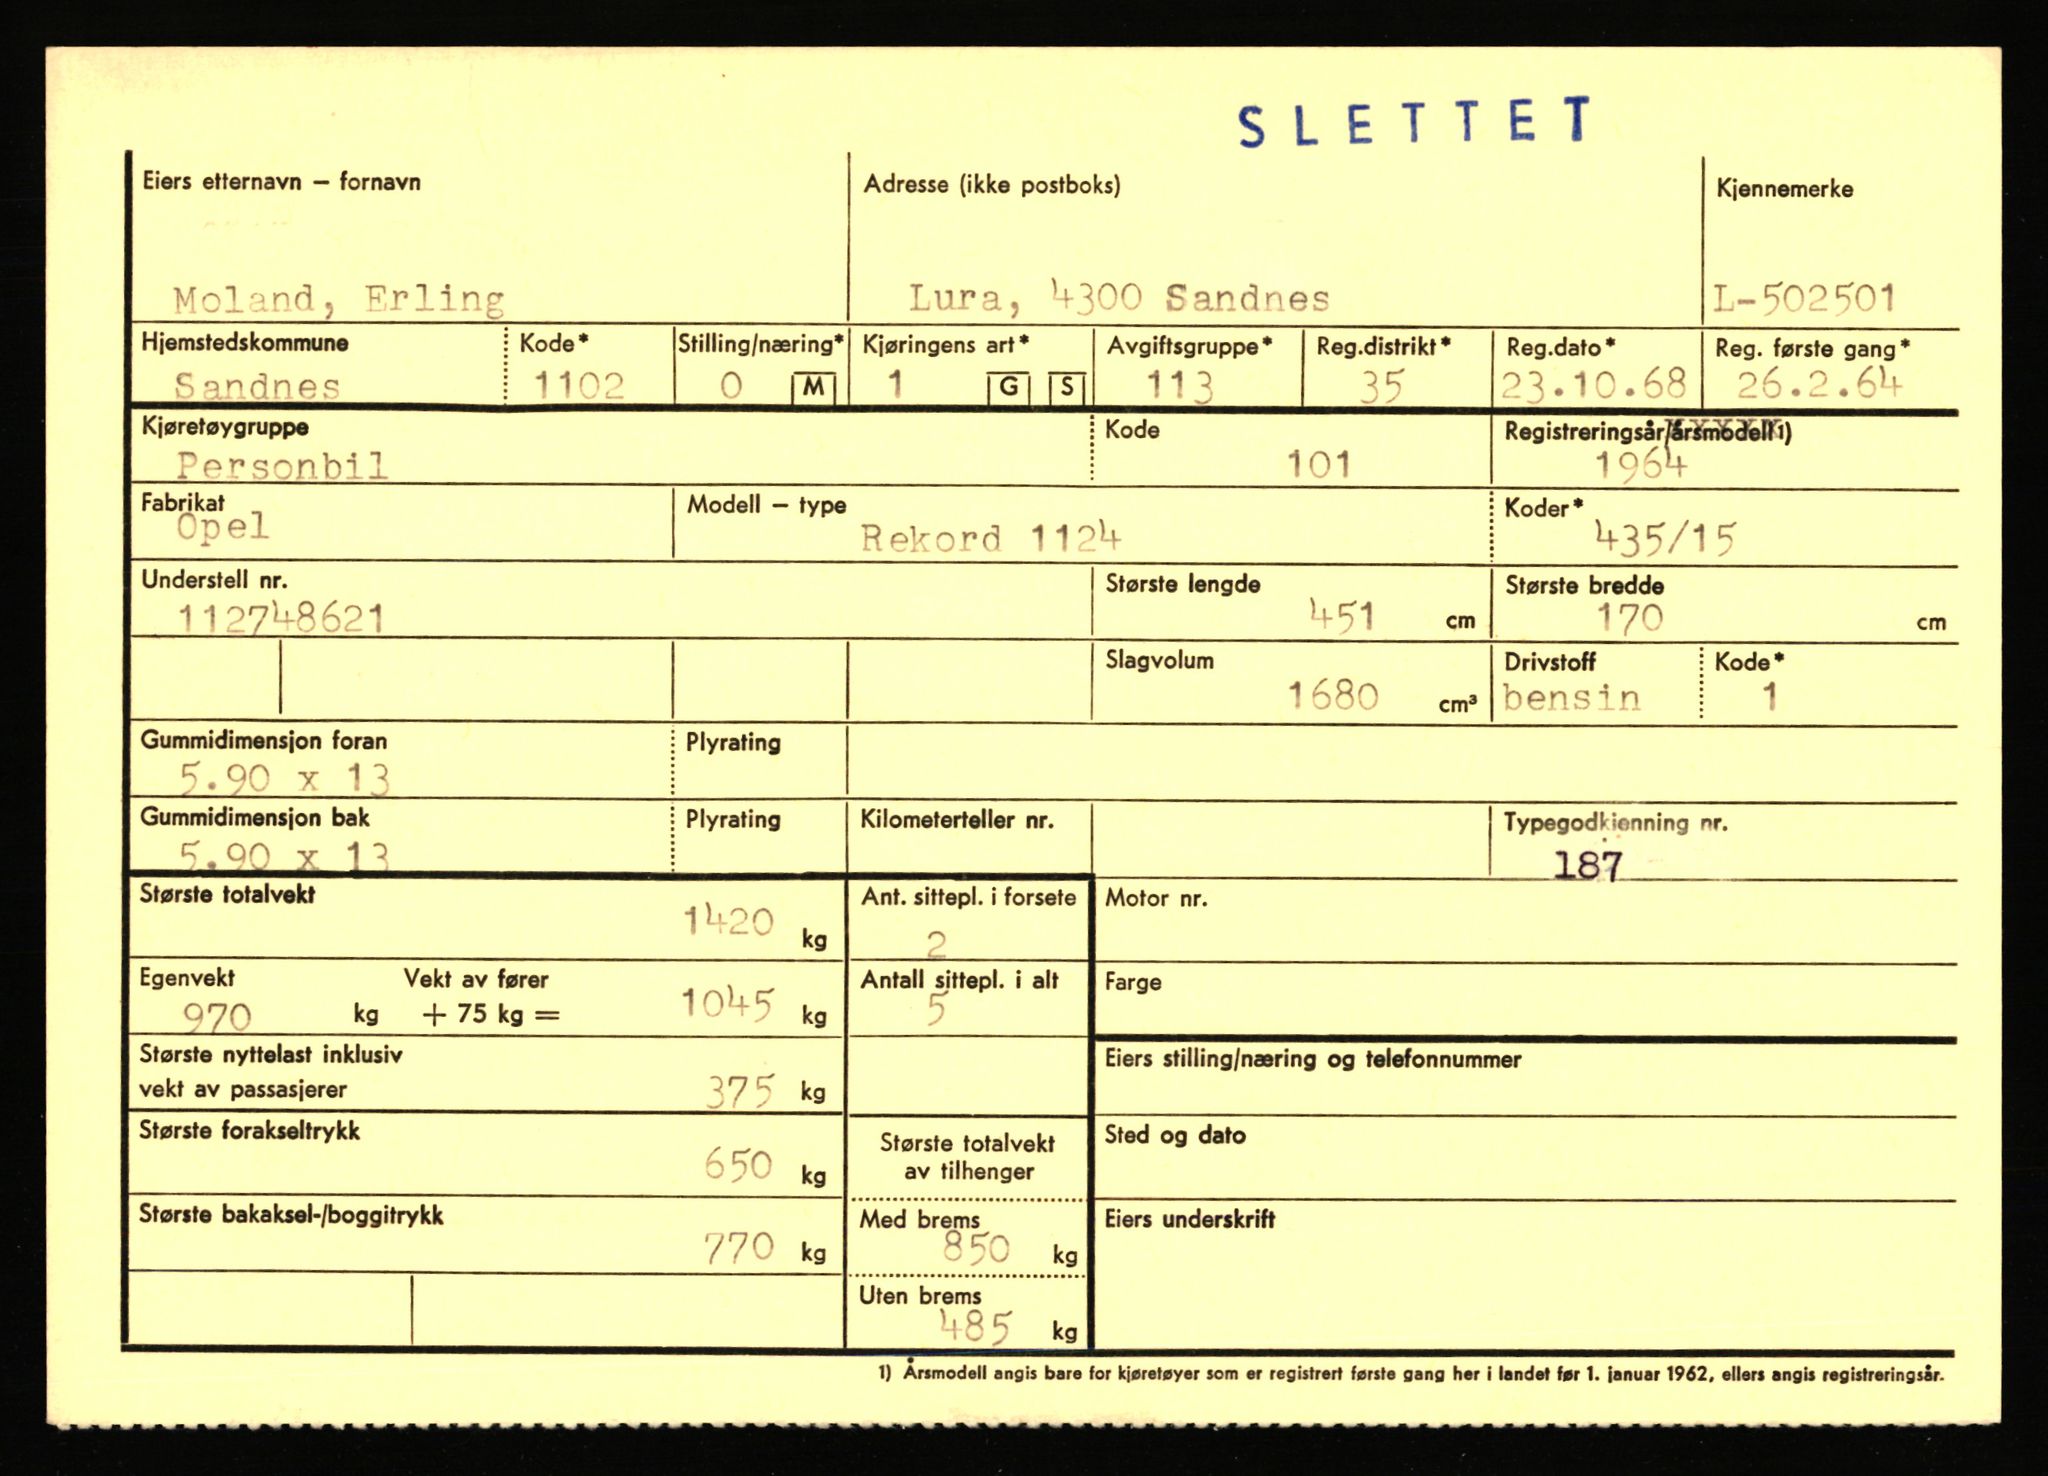 SLETTET
Eiers etternavn – fornavn
Adresse (ikke postboks)
Kjennemerke
Moland, Erling
Lura, 4300 Sandnes
L-502501
Hjemstedskommune
Kode*
Stilling/næring*
Kjøringens art*
Avgiftsgruppe*
Reg.distrikt*
Reg.dato*
Reg. første gang*
Sandnes
1102
0 M
1 G S
113
35
23.10.68
26.2.64
Kjøretøygruppe
Kode
Registreringsår/årsmodell 1)
Personbil
101
1964
Fabrikat
Modell – type
Koder*
Opel
Rekord 1124
435/15
Understell nr.
Største lengde
Største bredde
112748621
451 cm
170 cm
Slagvolum
Drivstoff
Kode*
1680 cm³
bensin
1
Gummidimensjon foran
Plyrating
5.90 x 13
Gummidimensjon bak
Plyrating
Kilometerteller nr.
Typegodkjenning nr.
5.90 x 13
187
Største totalvekt
1420 kg
Ant. sittepl. i forsete
2
Motor nr.
Egenvekt
Vekt av fører
970 kg + 75 kg = 1045 kg
Antall sittepl. i alt
5
Farge
Største nyttelast inklusiv
vekt av passasjerer
375 kg
Eiers stilling/næring og telefonnummer
Største forakseltrykk
650 kg
Største totalvekt
av tilhenger
Sted og dato
Største bakaksel-/boggitrykk
770 kg
Med brems
850 kg
Eiers underskrift
Uten brems
485 kg
1) Årsmodell angis bare for kjøretøyer som er registrert første gang her i landet før 1. januar 1962, ellers angis registreringsår.